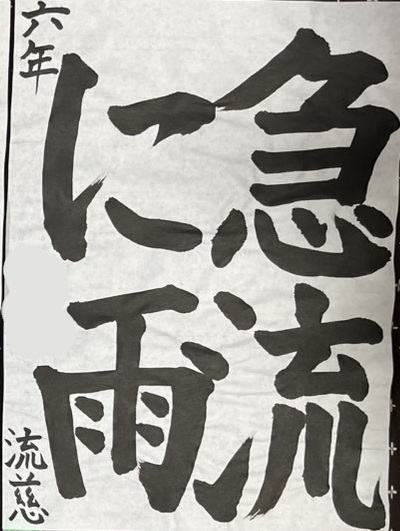 急流
に雨
六年
流慈